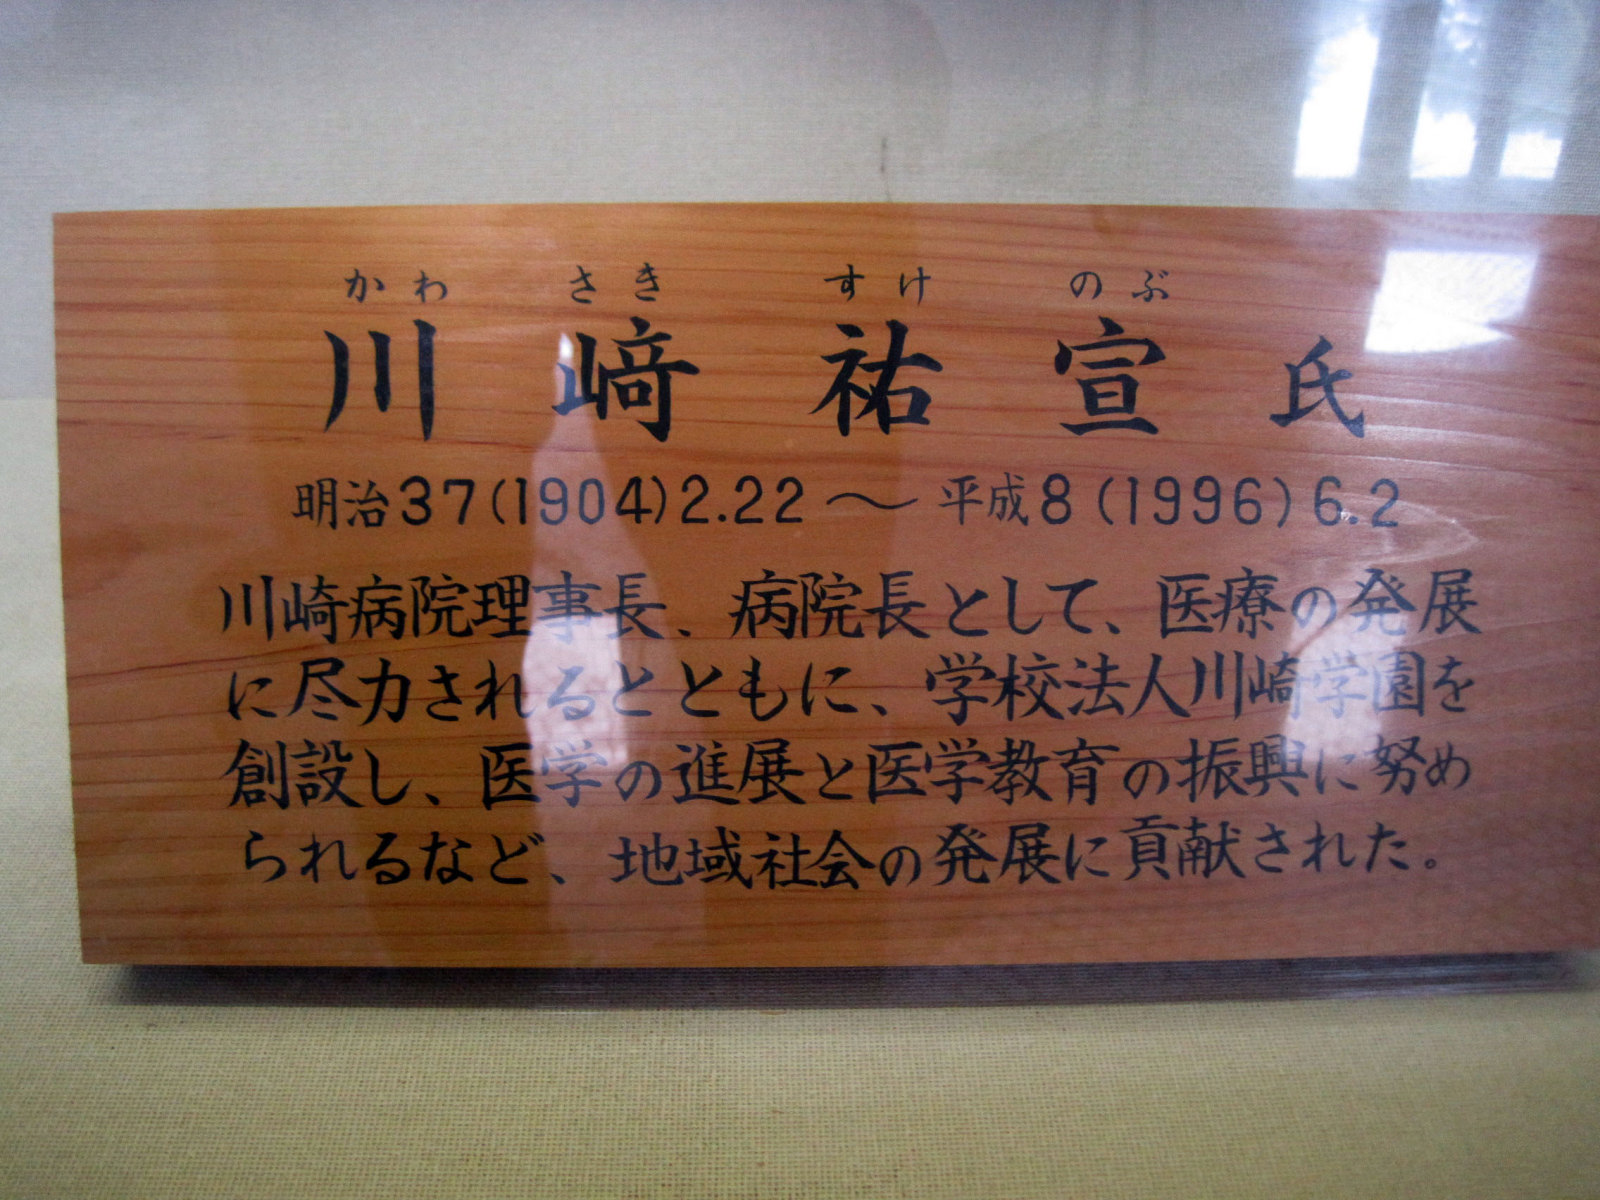 かわ さき すけ のぶ
川 﨑 祐 宣 氏
明治37(1904)2.22 ～ 平成8(1996)6.2
川崎病院理事長、病院長として、医療の発展
に尽力されるとともに、学校法人川崎学園を
創設し、医学の進展と医学教育の振興に努め
られるなど、地域社会の発展に貢献された。